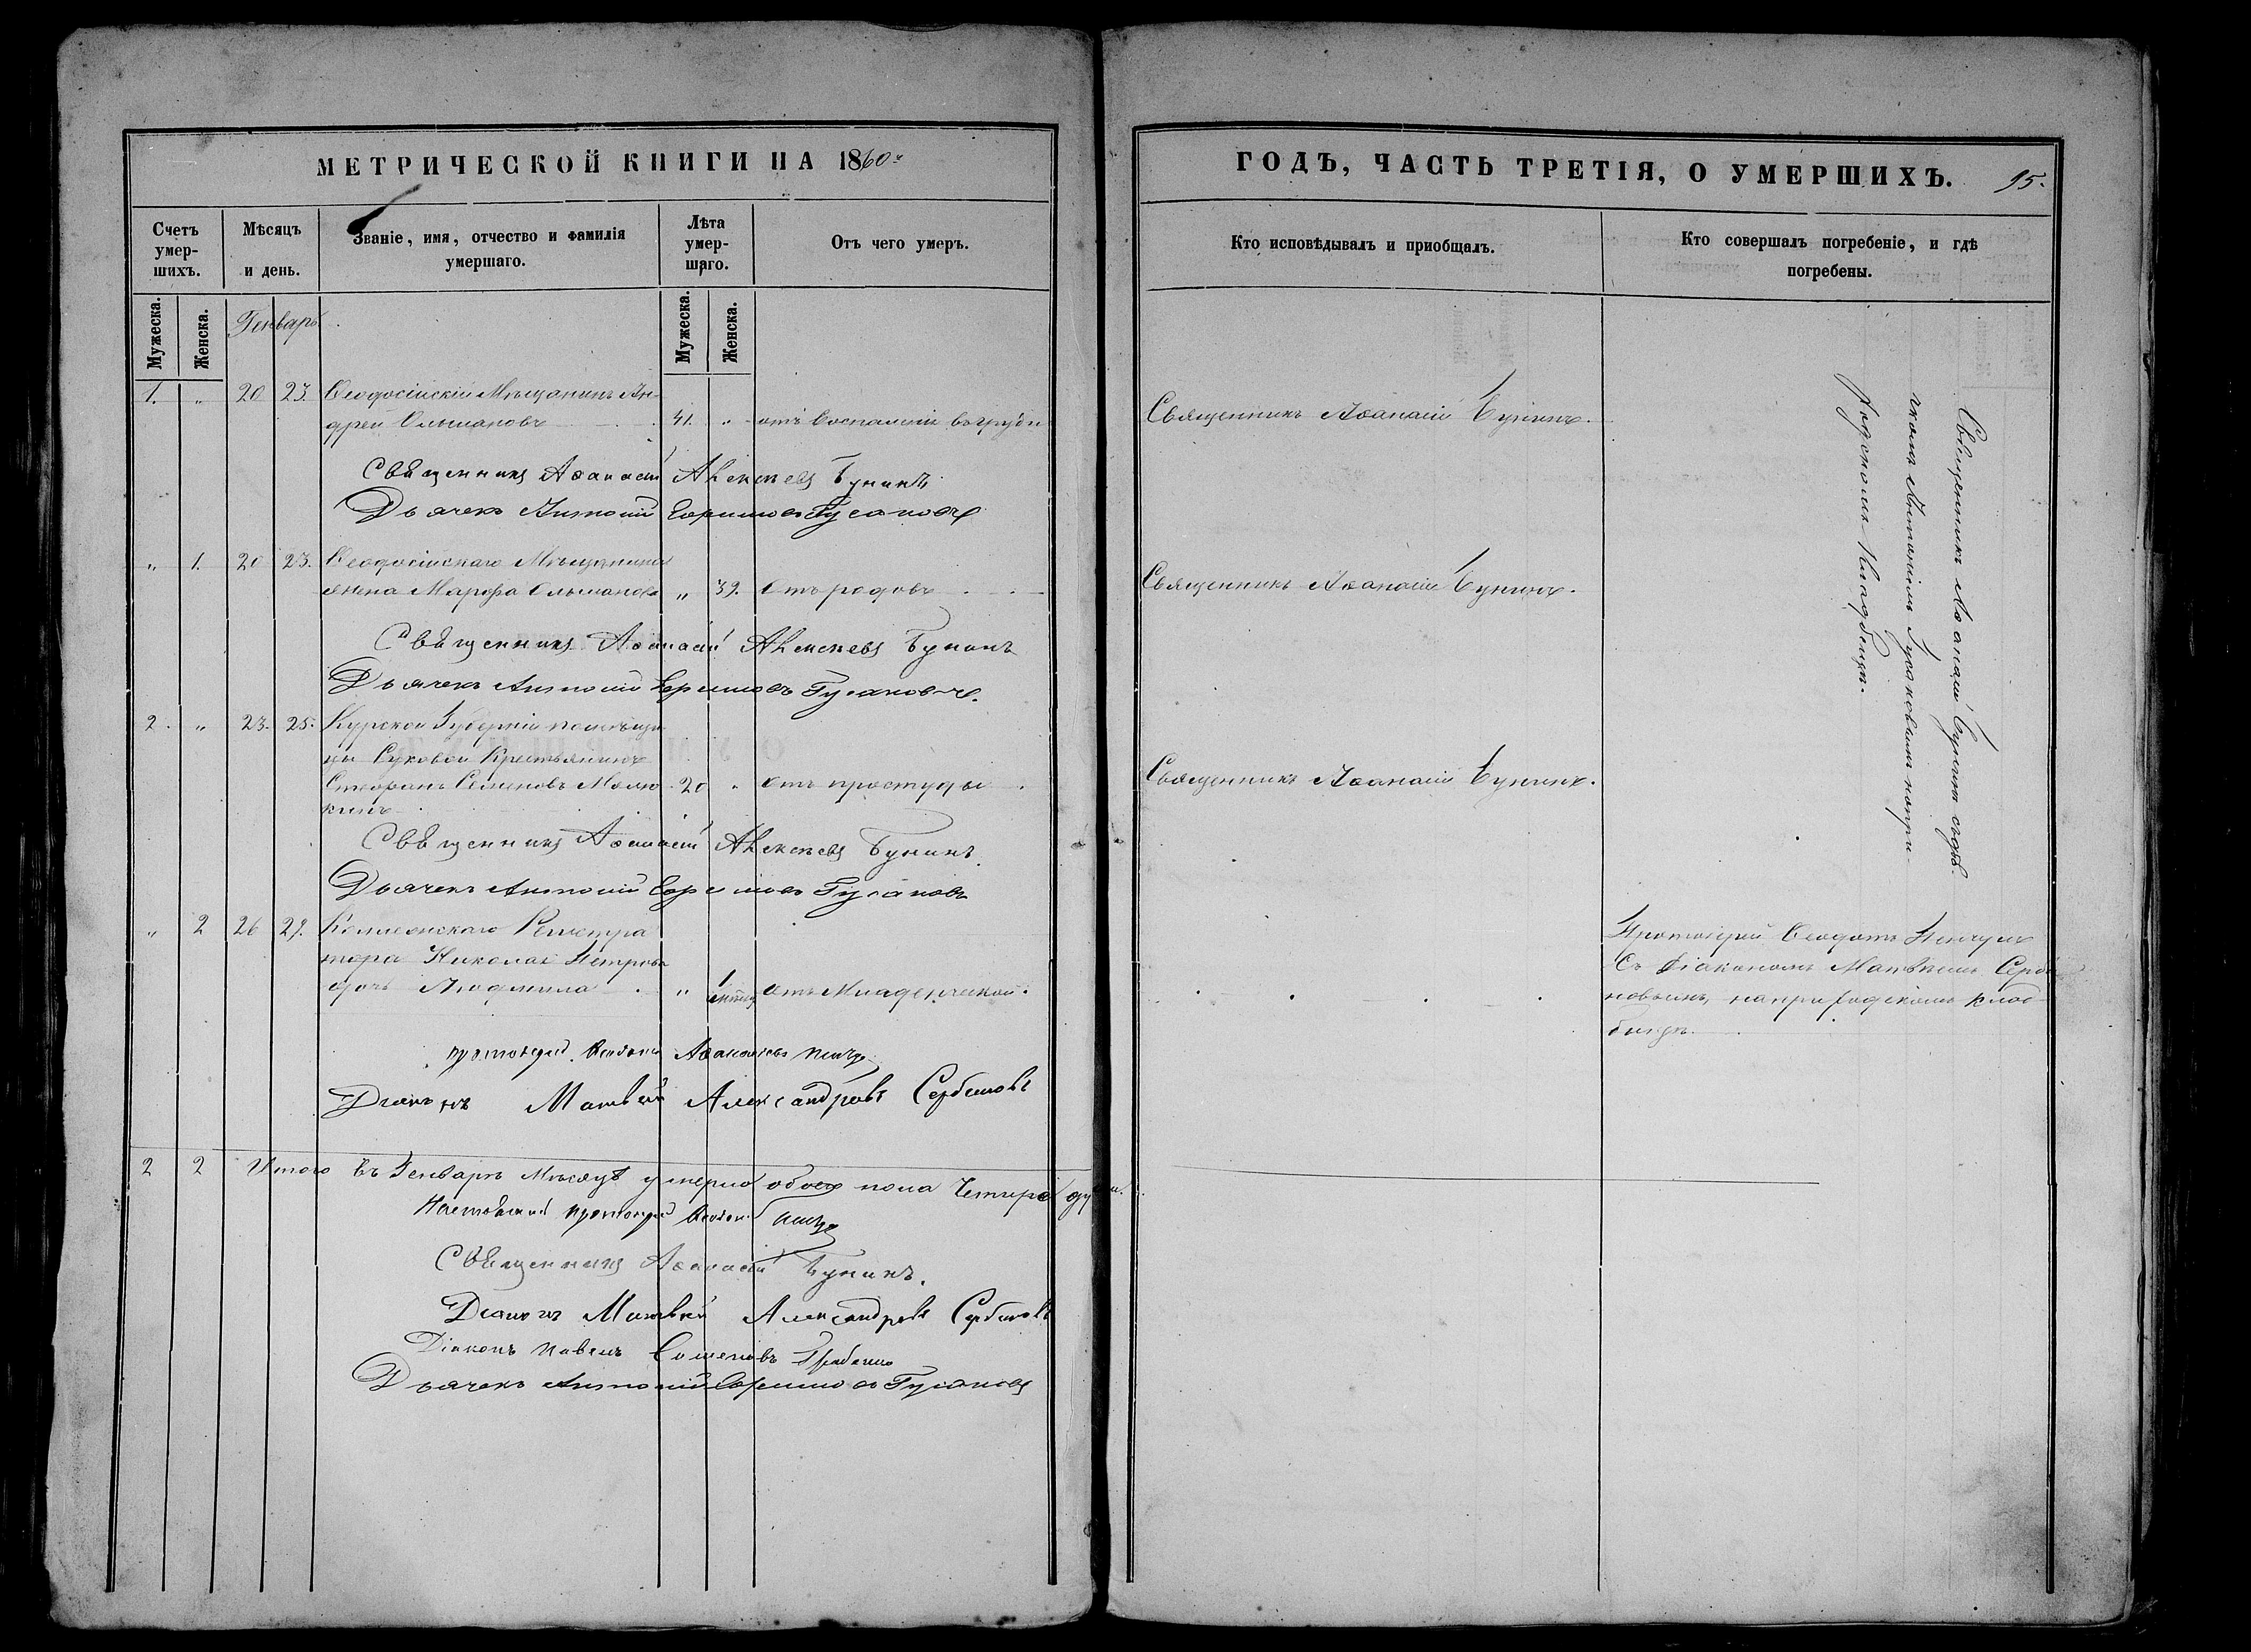 МЕТРИЧЕСКОЙ КНИГИ НА 1860.
Счетъ умер-шихъ.
Мѣсяцъ и день.
Званіе, имя, отчество и фамилія умершаго.
Лѣта умер-шаго.
Отъ чего умеръ.
Мужеска.
Женска.
Генварь
Мужеска.
Женска.
1. „ 20 23. Ѳеодосійскій Мѣщанинъ Ан-
дрей Ольшановъ 41. „ отъ воспаленія въ груди
Священникъ Аѳанасій Алексѣевъ Бунинъ
Дьячекъ Антоній Ефимовъ Гусаковъ
„ 1. 20 23. Ѳеодосійскаго Мѣщанина
жена Марфа Ольшанова „ 39. Отъ родовъ
Священникъ Аѳанасій Алексѣевъ Бунинъ
Дьячекъ Антоній Ефимовъ Гусаковъ.
2. „ 23. 25. Курской Губерніи помѣщи-
цы Крестьянинъ
Семеновъ 20 „ Отъ простуды
Священникъ Аѳанасій Алексѣевъ Бунинъ.
Дьячекъ Антоній Ефимовъ Гусаковъ
„ 2 26 27. Коллежскаго Регистра
тора Николая Петрова
дочь Людмила „ 1 отъ Младенческой.
протоіерей
Діаконъ Матвѣй Александровъ Сербиновъ
2 2 Итого въ Генварѣ Мѣсяцѣ умерло обоего пола Четыре души.
протоіерей
Священникъ Аѳанасій Бунинъ.
Діаконъ Матвѣй Александровъ Сербиновъ
Діаконъ Павелъ Семеновъ
Дьячекъ Антоній Ефимовъ Гусаковъ
ГОДЪ, ЧАСТЬ ТРЕТІЯ, О УМЕРШИХЪ. 95.
Кто исповѣдывалъ и приобщалъ.
Кто совершалъ погребеніе, и гдѣ погребены.
Священникъ Аѳанасій Бунинъ.
Священникъ Аѳанасій Бунинъ.
Священникъ Аѳанасій Бунинъ.
Священникъ Аѳанасій Бунинъ съ дья-
чкомъ Антоніемъ Гусаковымъ на при-
ходскомъ Кладбищѣ.
Протоіерей Ѳеодотъ
Съ Діакономъ Матвѣемъ Серби
новымъ, на приходскомъ клад
бищѣ.